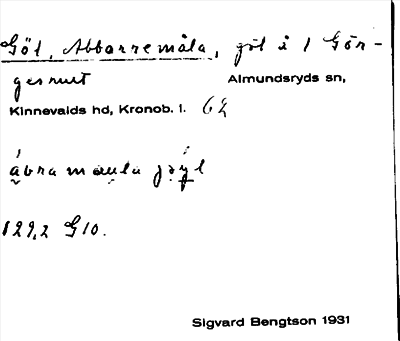 Göl, Abbarremåla, göl å 1 Gör-
gesmåt Almundsryds sn,
Kinnevalds hd, Kronob. l. 62
ábra maula jöyl
129,2 G10.
Sigvard Bengtson 1931